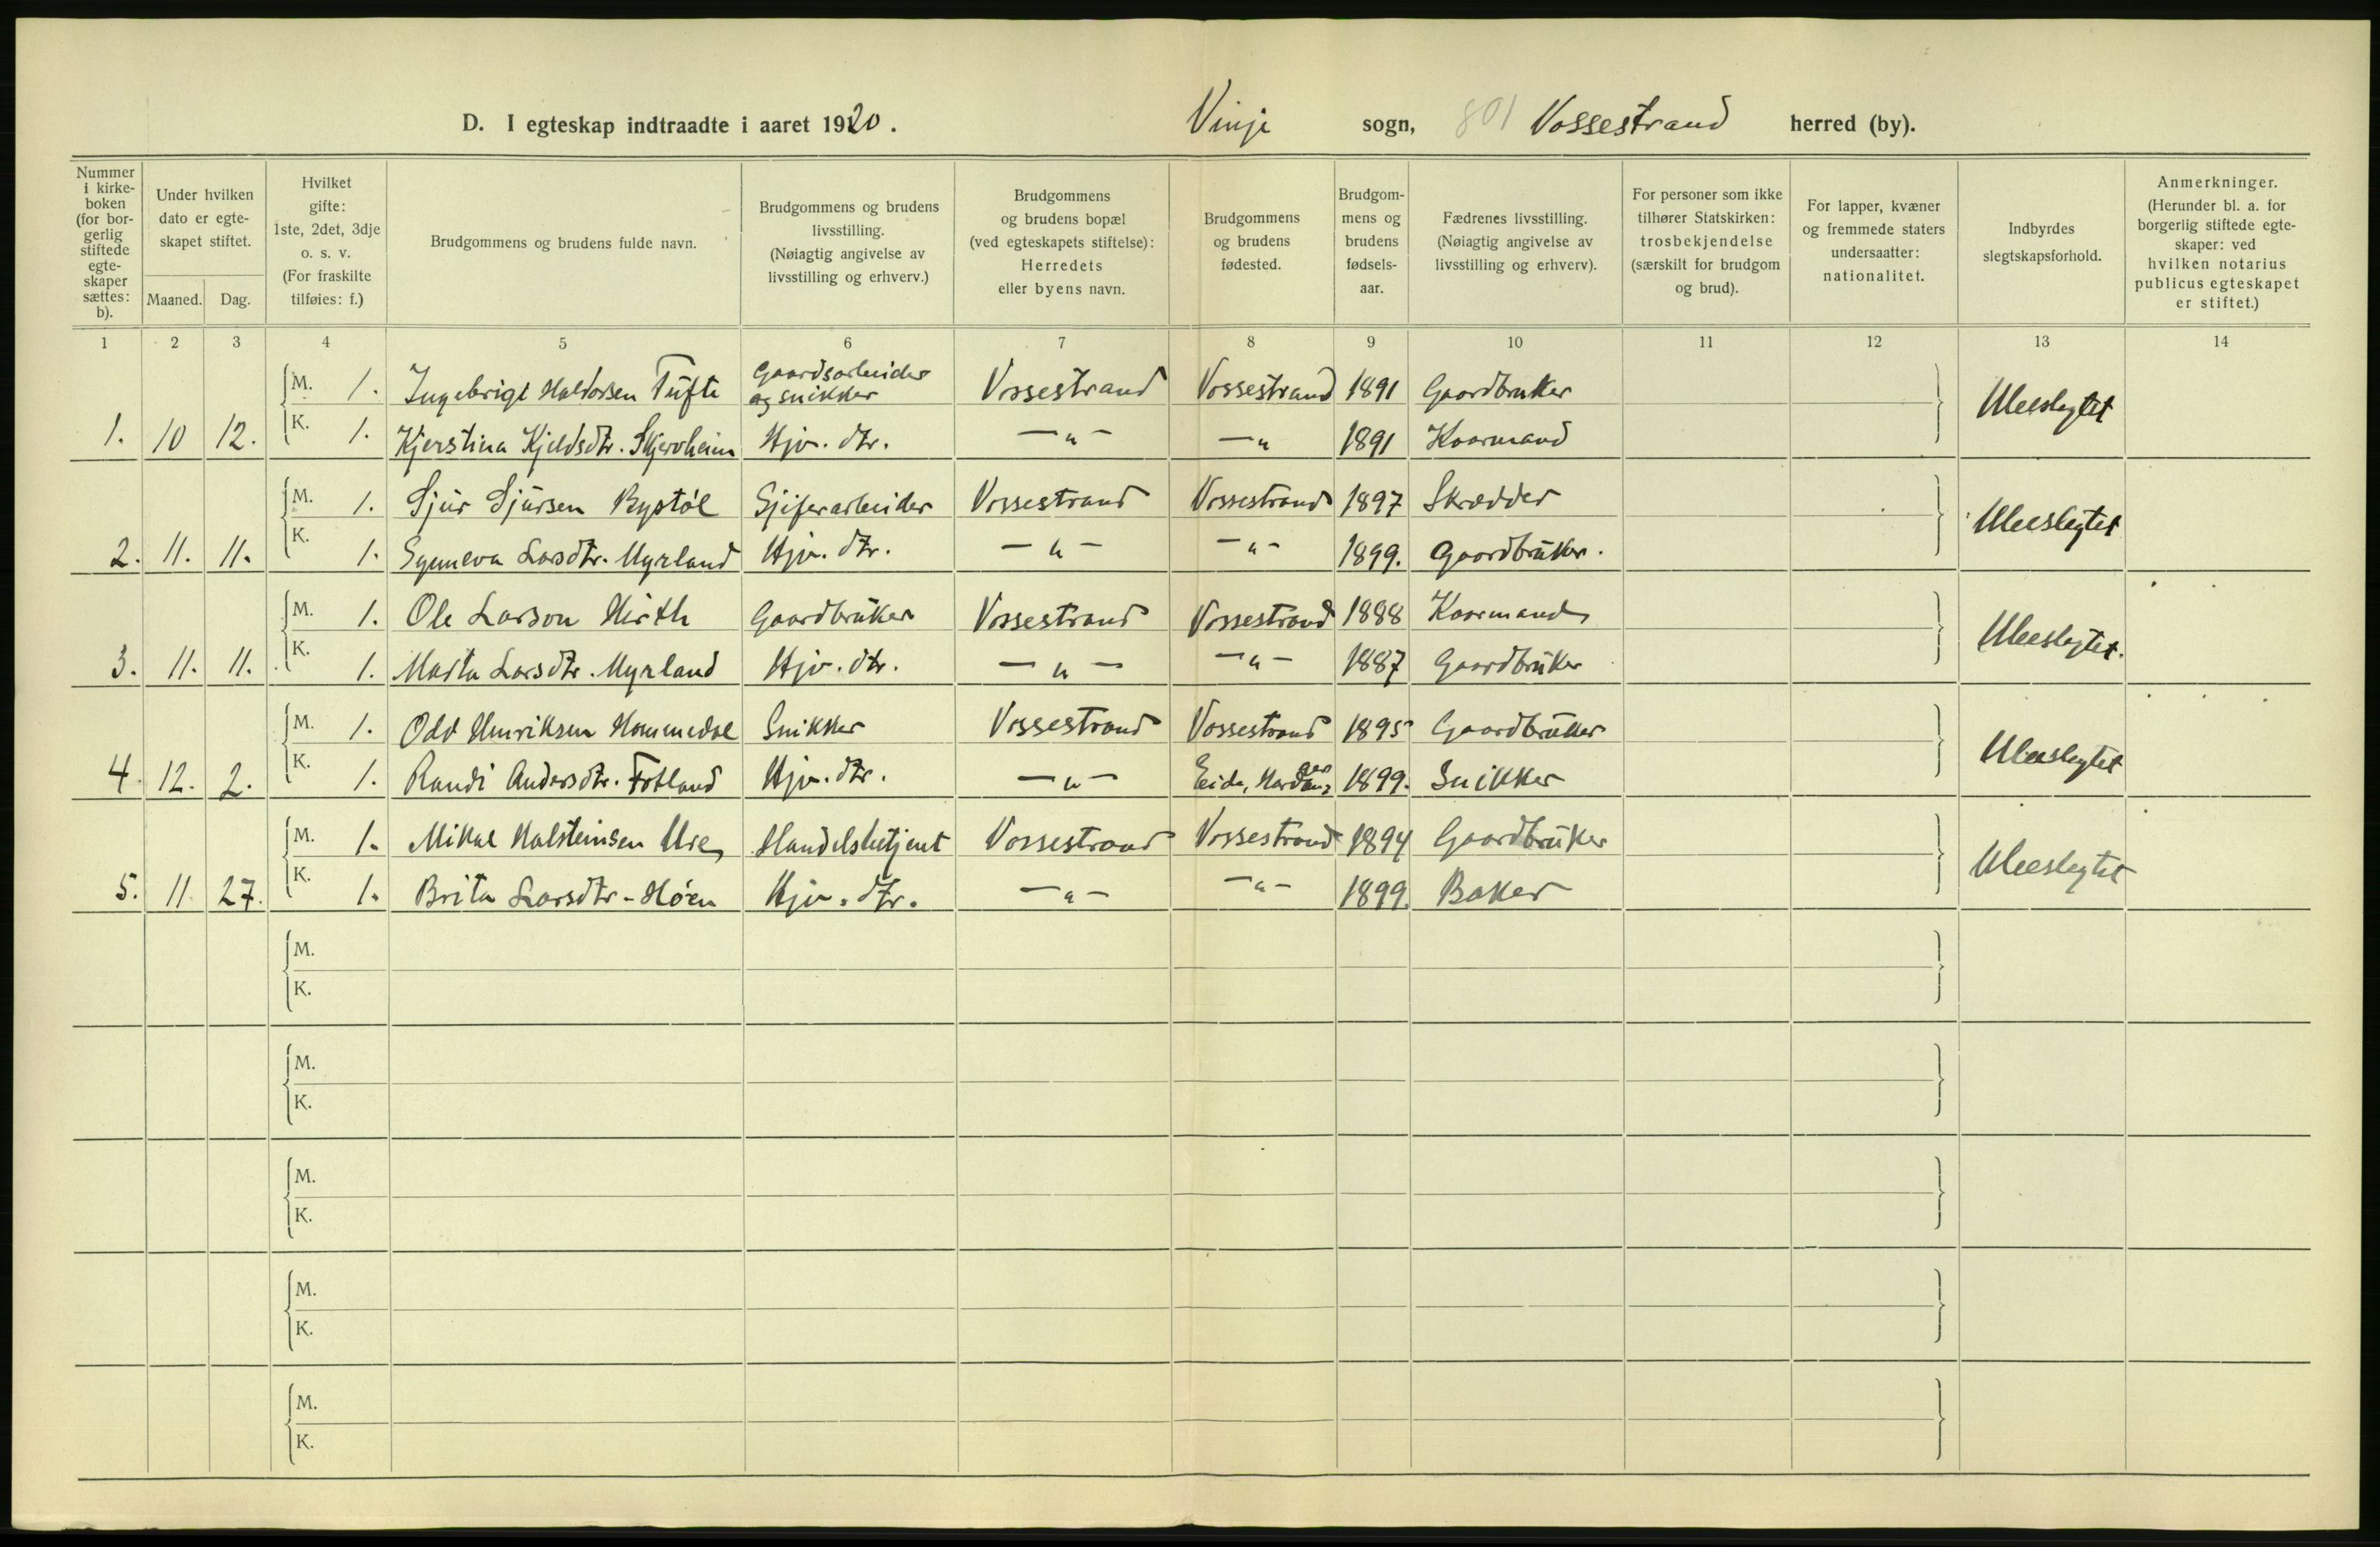 D. I egteskap indtraadte i aaret 1920. Vinje sogn, 801 Vossestrand herred (by).
Nummer i kirke-boken (for bor-gerlig stiftede egte-skaper sættes: b).
Under hvilken dato er egte-skapet stiftet.
Maaned. Dag.
Hvilket gifte: 1ste, 2det, 3dje o. s. v. (For fraskilte tilføies: f.)
Brudgommens og brudens fulde navn.
Brudgommens og brudens livsstilling. (Nøiagtig angivelse av livsstilling og erhverv.)
Brudgommens og brudens bopæl (ved egteskapets stiftelse): Herredets eller byens navn.
Brudgommens og brudens fødested.
Brudgom-mens og brudens fødsels-aar.
Fædrenes livsstilling. (Nøiagtig angivelse av livsstilling og erhverv).
For personer som ikke tilhører Statskirken: trosbekjendelse (særskilt for brudgom og brud).
For lapper, kvæner og fremmede staters undersaatter: nationalitet.
Indbyrdes slegtskapsforhold.
Anmerkninger. (Herunder bl. a. for borgerlig stiftede egte-skaper: ved hvilken notarius publicus egteskapet er stiftet.)
1 2 3 4 5 6 7 8 9 10 11 12 13 14
M. 1. Ingebrigt Haldorsen Tufte Gaardsarbeider og snikker Vossestrand Vossestrand 1891 Gaardbruker Ubeslegtet
1. 10 12. K. 1. Kjerstina Kjeldsdtr. Skjervheim Hjv. dtr. —"— —" 1891 Kaarmand
M. 1. Sjur Sjursen Bystøl Vossestrand Vossestrand 1897 Skrædder Ubeslegtet
2. 11. 11. K. 1. Synneva Larsdtr. Myrland Hjv. dtr. —"— —"— 1899. Gaardbruker.
M. 1. Ole Larson Hirth Gaardbruker Vossestrand Vossestrand 1888 Kaarmand Ubeslegtet.
3. 11. 11. K. 1. Marta Larsdtr. Myrland Hjv. dtr. —"— —"— 1887 Gaardbruker
M. 1. Odd Henriksen Hommedal Snikker Vossestrand Vossestrand 1895 Gaardbruker Ubeslegtet
4. 12. 2. K. 1. Randi Andersdtr. Fotland Hjv. dtr. —"— Eide, Hardanger 1899. Snikker
M. 1. Mikal Halsteinsen Ure Handelsbetjent Vossestrand Vossestrand 1894 Gaardbruker Ubeslegtet
5. 11 27. K. 1. Brita Larsdtr. Høen Hjv. dtr. —"— —"— 1899. Baker
M.
K.
M.
K.
M.
K.
M.
K.
M.
K.